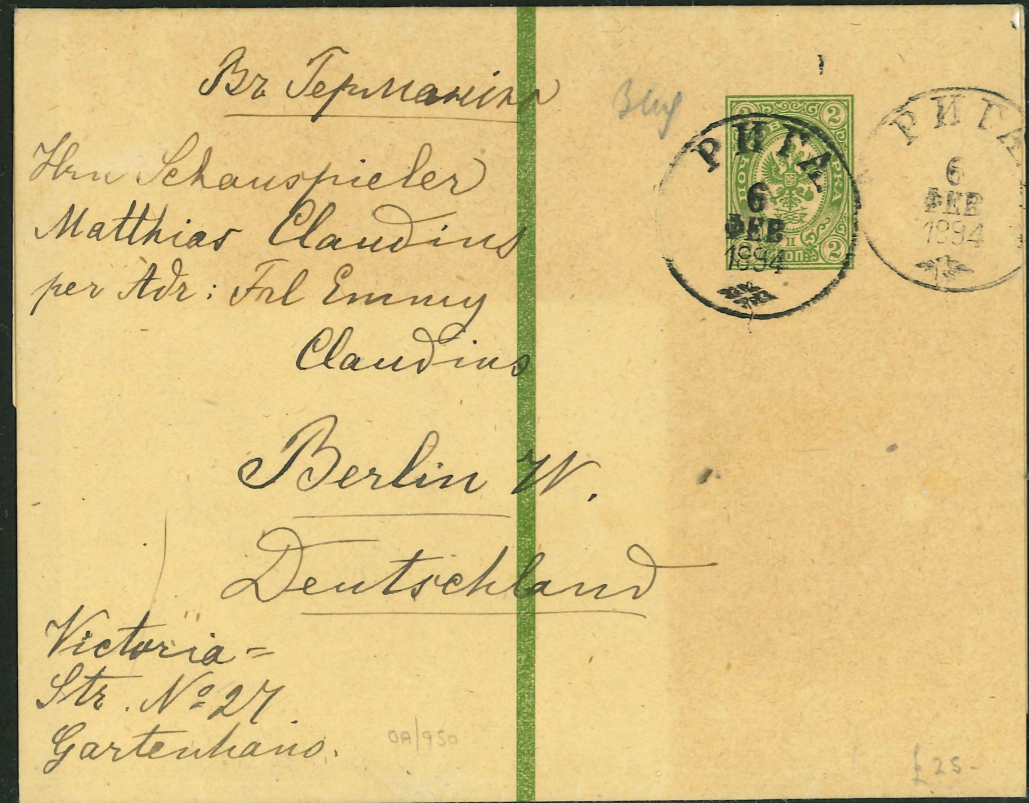 Въ Германію
Hrn Schauspieler
Matthias Claudius
per Adr: Frl Emmy
Claudius
Berlin W.
Deutschland
Victoria=
Str. No 27
Gartenhaus.
РИГА
6
ФЕВ
1894
РИГА
6
ФЕВ
1894
2 2
2
КОП.
OA/950
£25-